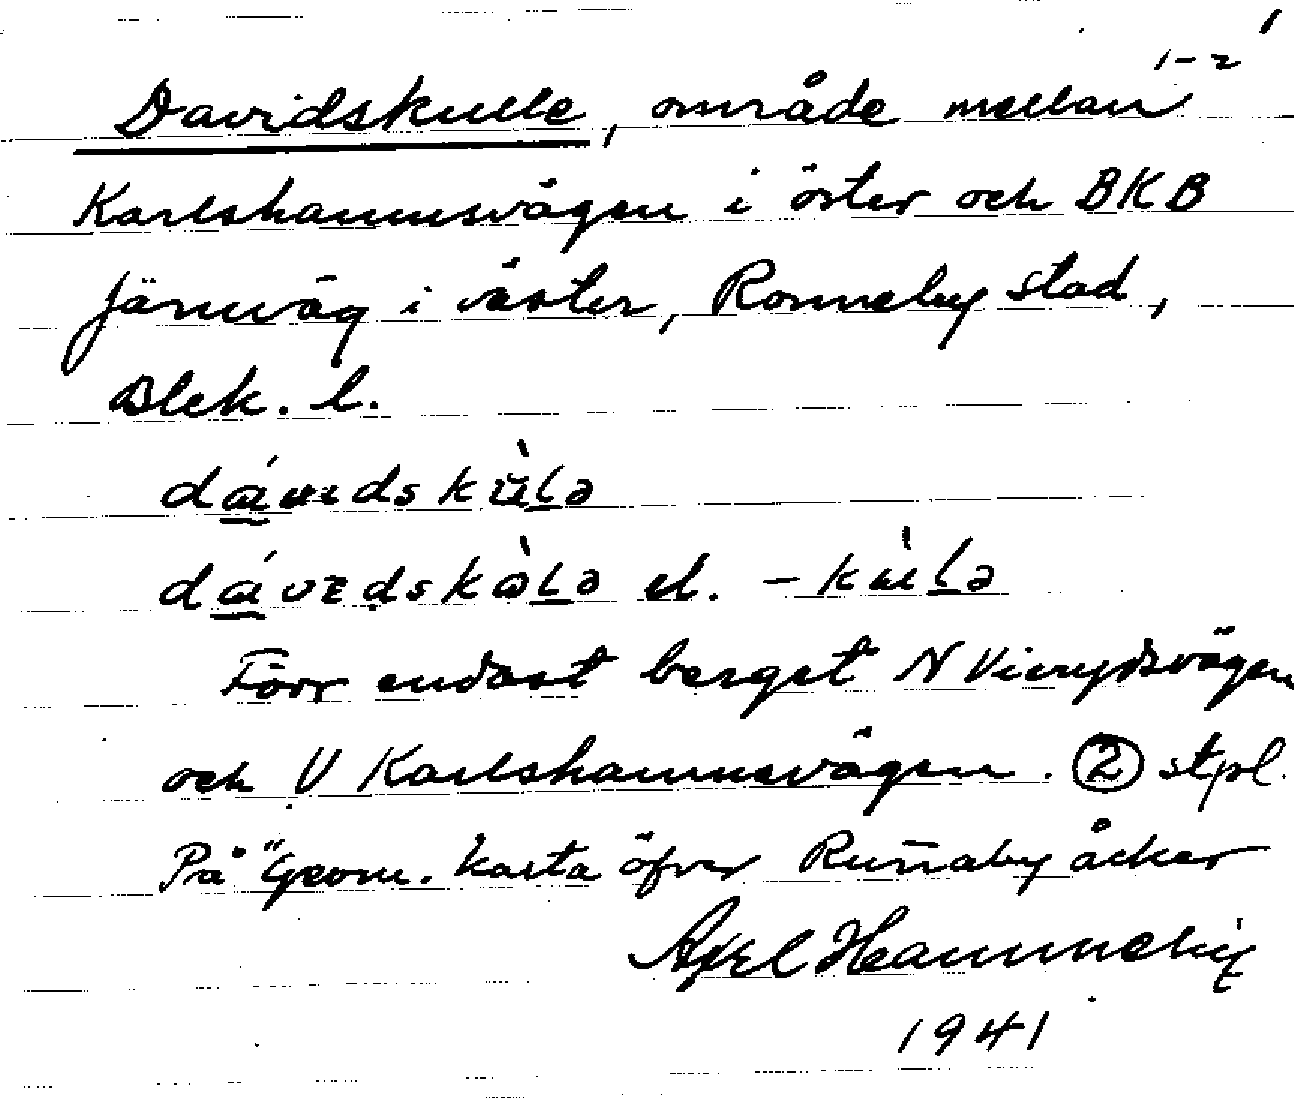 1
1-2
Davidskulle, område mellan
Karlshamnsvägen i öster och BKB
järnväg i väster, Ronneby stad,
Blek. l.
el.
Förr endast berget N Vierydsvägen
och V Karlshamnsvägen. ② stpl.
På "Geom. karta öfver Runnaby åcker
Axel Hammneby
1941